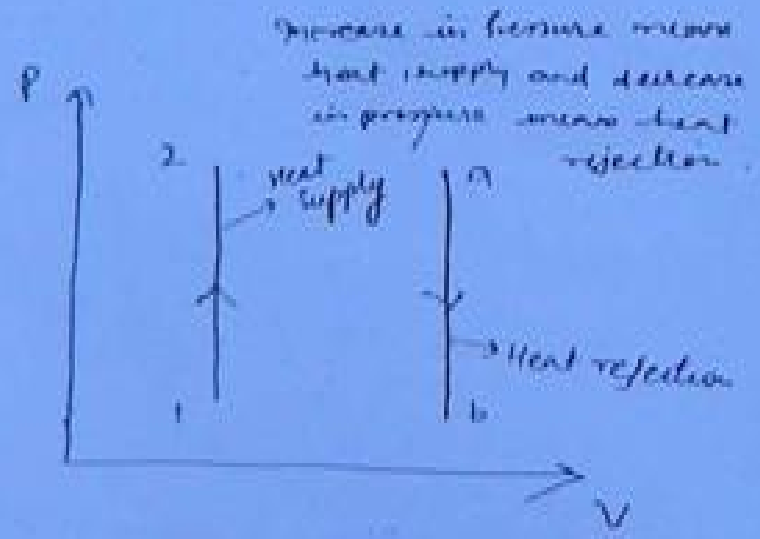 Increase in pressure means
heat supply and decrease
in pressure means heat
rejection.
P
2
Heat
supply
a
Heat rejection
1
b
V